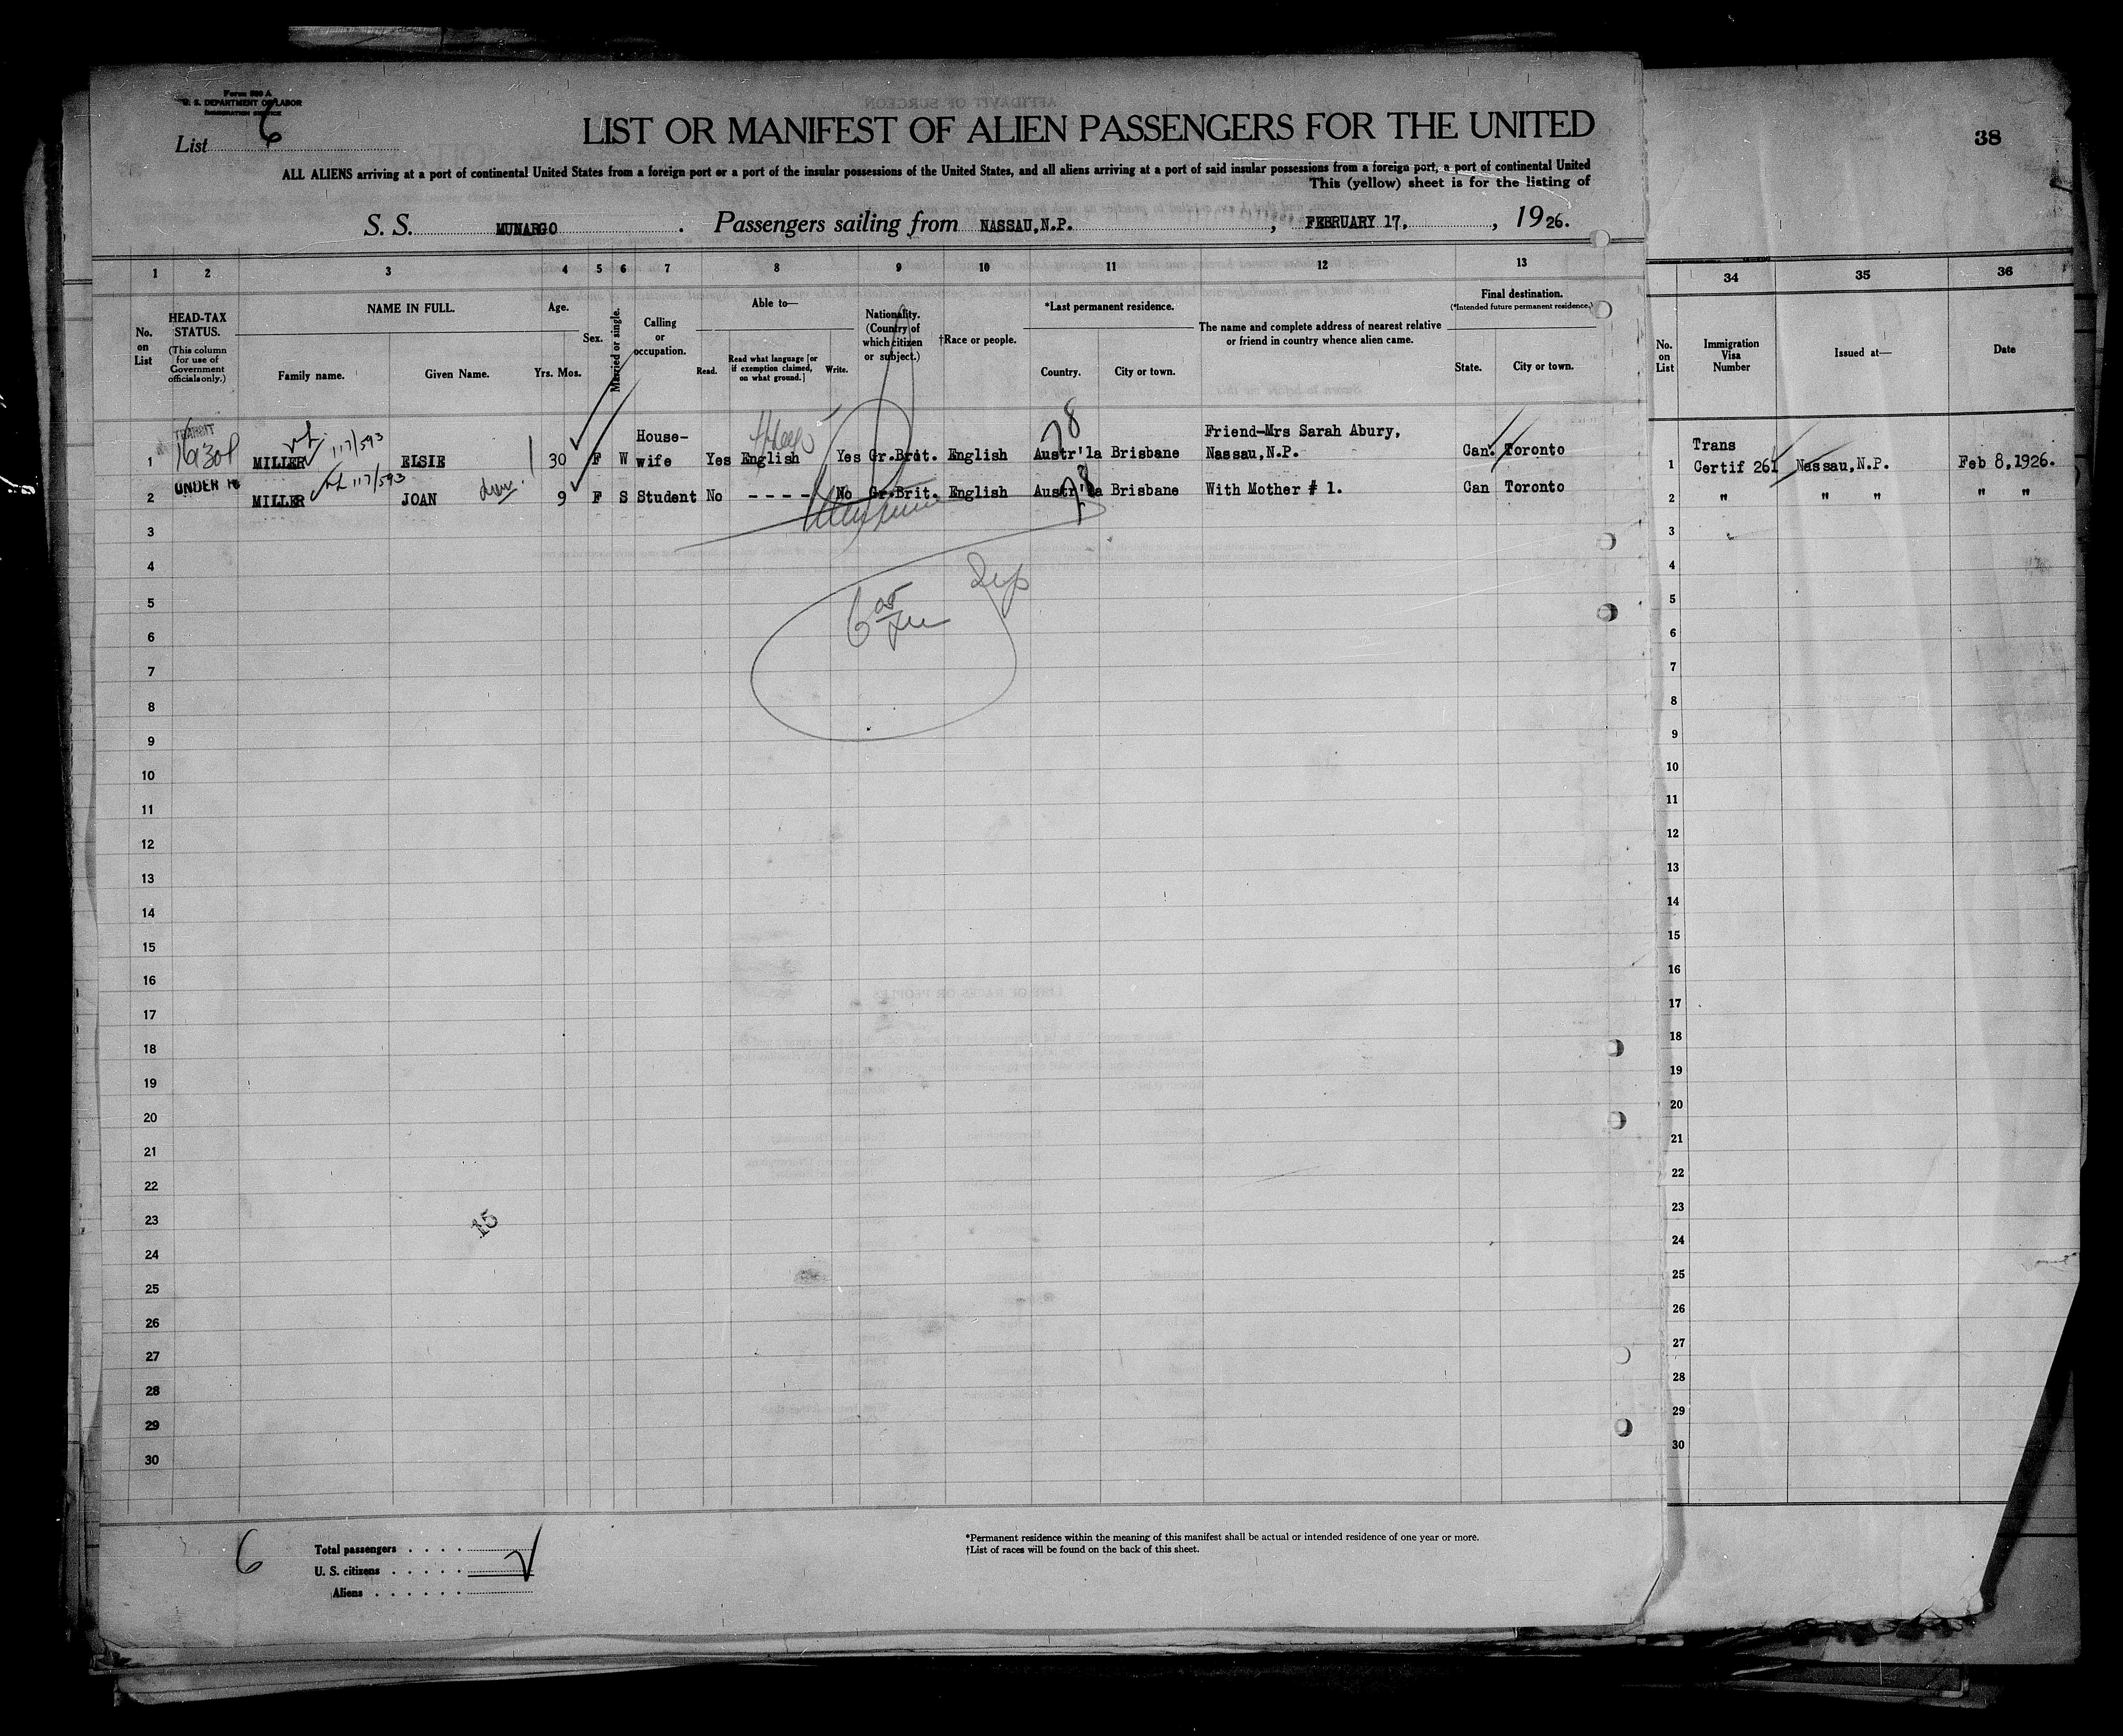 Form 500 A
U. S. DEPARTMENT OF LABOR
IMMIGRATION SERVICE
List 6
LIST OR MANIFEST OF ALIEN PASSENGERS FOR THE UNITED
38
ALL ALIENS arriving at a port of continental United States from a foreign port or a port of the insular possessions of the United States, and all aliens arriving at a port of said insular possessions from a foreign port, a port of continental United
This (yellow) sheet is for the listing of
S. S. MUNARGO . Passengers sailing from NASSAU,N.P. , FEBRUARY 17, , 1926.
1 2 3 4 5 6 7 8 9 10 11 12 13 34 35 36
No. on List
HEAD-TAX STATUS.
(This column for use of Government officials only.)
NAME IN FULL.
Family name. Given Name.
Age.
Yrs. Mos.
Sex.
Married or single.
Calling or occupation.
Able to—
Read. Read what language [or if exemption claimed, on what ground.] Write.
Nationality. (Country of which citizen or subject.)
†Race or people.
*Last permanent residence.
Country. City or town.
The name and complete address of nearest relative or friend in country whence alien came.
Final destination.
(*Intended future permanent residence.)
State. City or town.
No. on List
Immigration Visa Number
Issued at—
Date
TRANSIT
117/593
1 MILLER ELSIE 30 F W House-wife Yes English Yes Gr.Brit. English Austr'la Brisbane Friend-Mrs Sarah Abury, Nassau,N.P. Can. Toronto
1 Trans Certif 261 Nassau,N.P. Feb 8,1926.
UNDER 16
117/593
2 MILLER JOAN 9 F S Student No - - - - No Gr.Brit. English Austr'la Brisbane With Mother # 1. Can Toronto
2 " " " " "
78
78
3 3
4 4
5 5
6 6
7 7
8 8
9 9
10 10
11 11
12 12
13 13
14 14
15 15
16 16
17 17
18 18
19 19
20 20
21 21
22 22
23 15 23
24 24
25 25
26 26
27 27
28 28
29 29
30 30
6
Total passengers
U. S. citizens
Aliens
*Permanent residence within the meaning of this manifest shall be actual or intended residence of one year or more.
†List of races will be found on the back of this sheet.